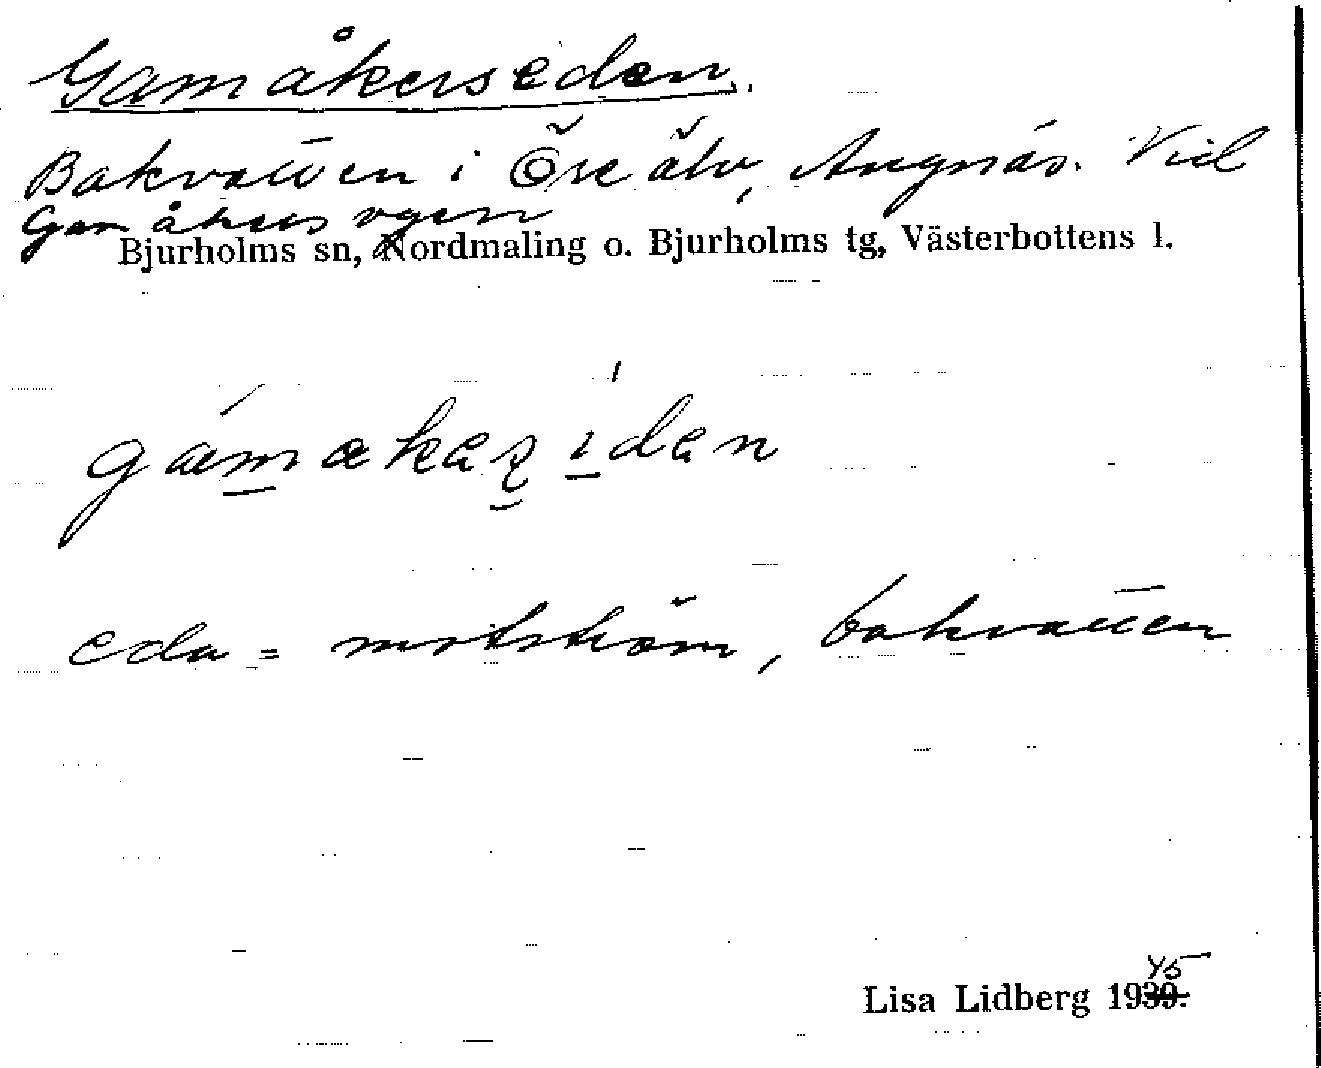 Gamåkerseden.
Bakvatten i Öre älv, Angnäs. Vid
Gamåkers
Bjurholms sn, Nordmaling o. Bjurholms tg, Västerbottens l.
gámakaʂ ìdan
eda = motström, bakvatten
45
Lisa Lidberg 1939.